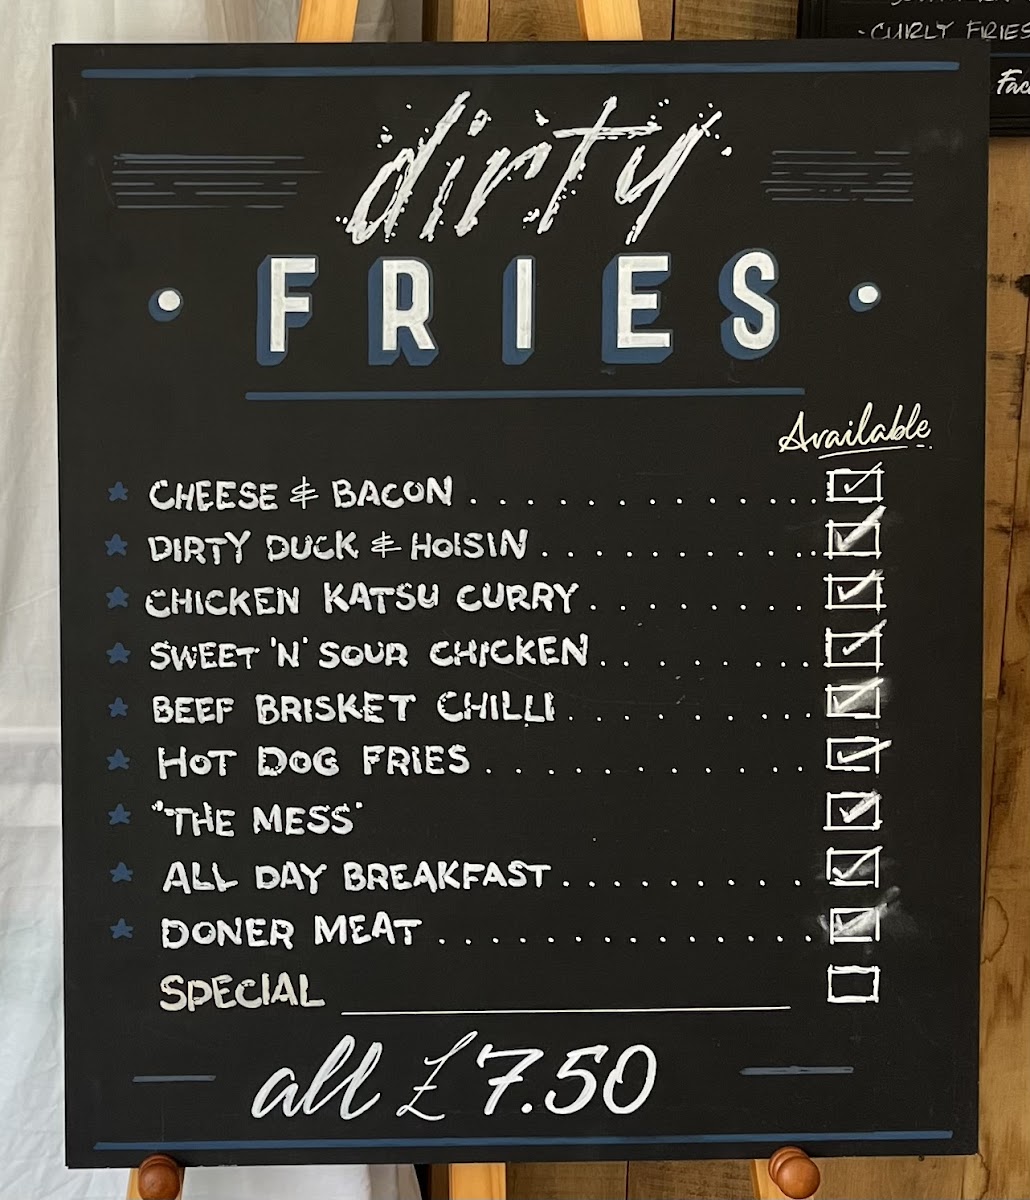 - CURLY FRIES
dirty
FRIES
Available
CHEESE & BACON
DIRTY DUCK & HOISIN
CHICKEN KATSU CURRY
SWEET 'N' SOUR CHICKEN
BEEF BRISKET CHILLI
HOT DOG FRIES
"THE MESS"
ALL DAY BREAKFAST
DONER MEAT
SPECIAL
all £7.50